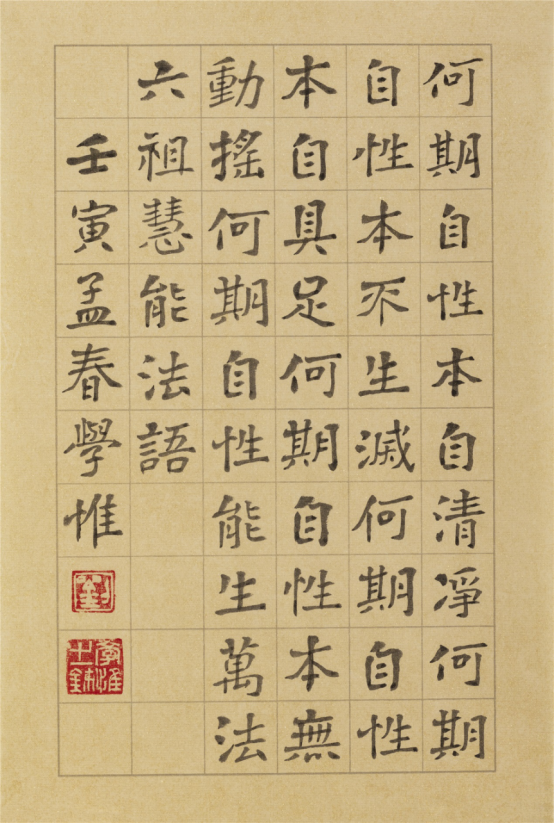 何期自性本自清淨何期
自性本不生滅何期自性
本自具足何期自性本無
動搖何期自性能生萬法
六祖慧能法語
壬寅孟春學惟
劉